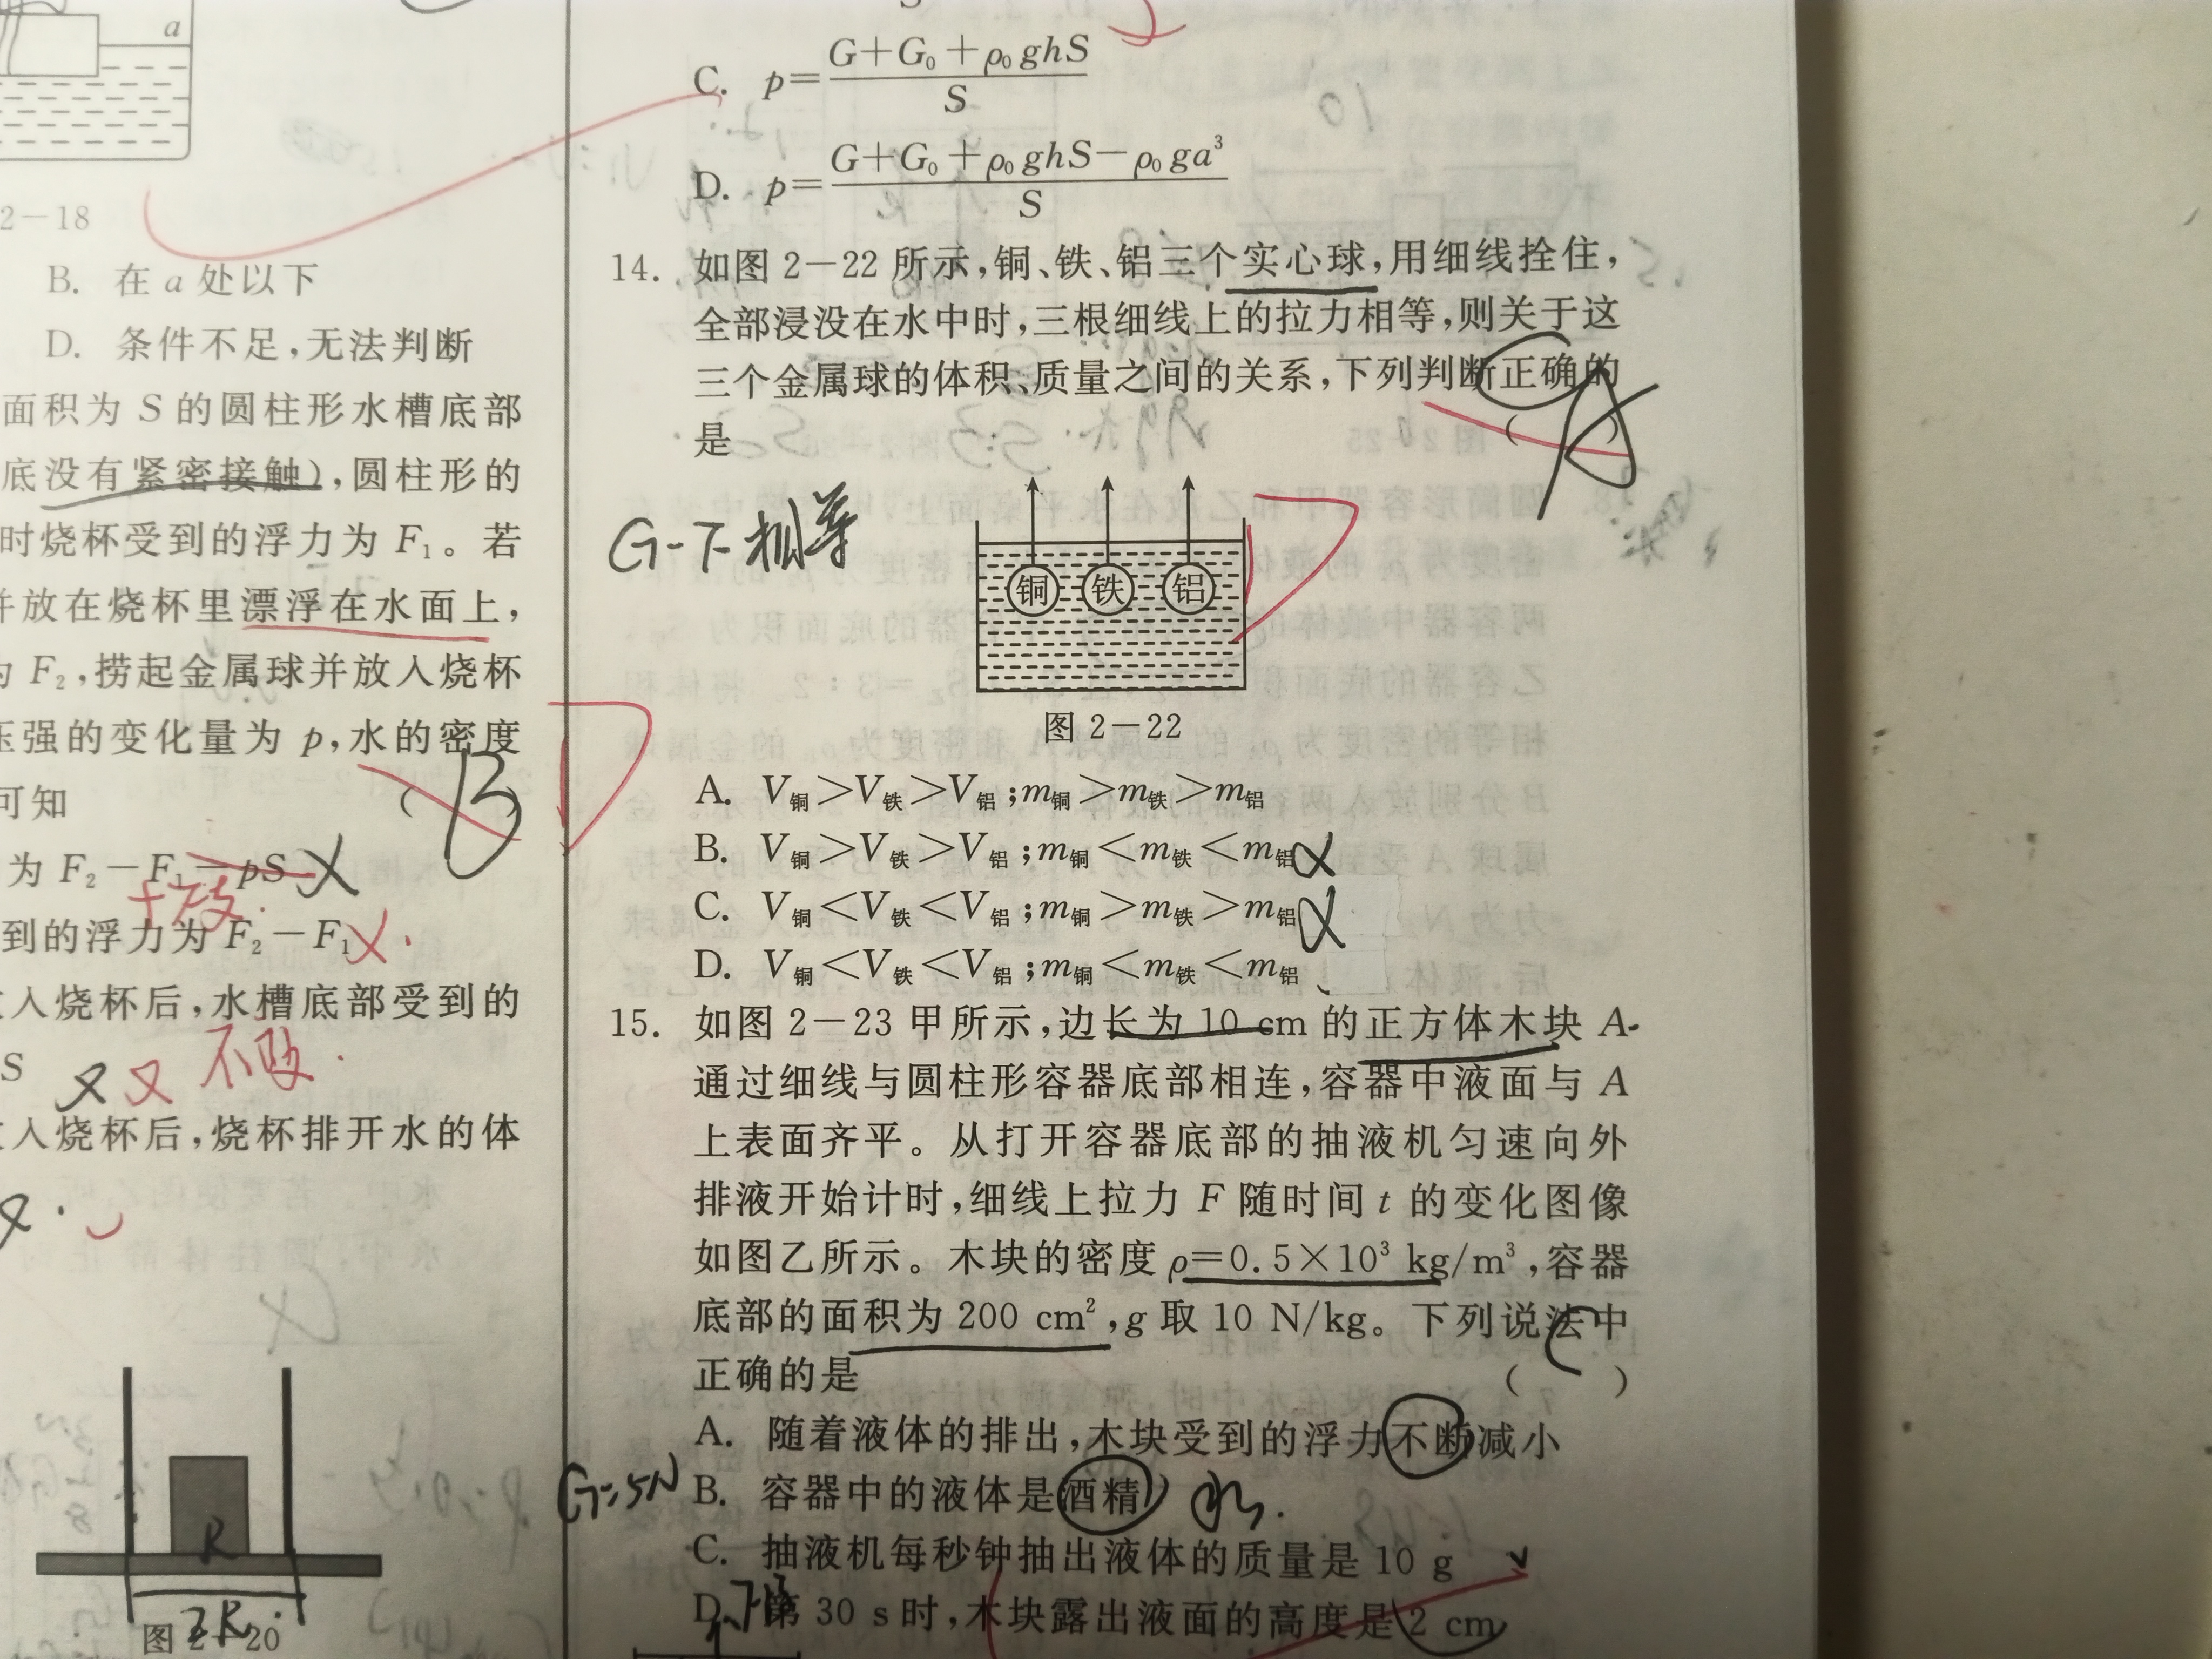 a
2-18
B. 在 a 处以下
D. 条件不足,无法判断
面积为 S 的圆柱形水槽底部
底没有紧密接触),圆柱形的
时烧杯受到的浮力为 F₁。若
并放在烧杯里漂浮在水面上,
为 F₂,捞起金属球并放入烧杯
压强的变化量为 p,水的密度
可知 ( B )
为 F₂-F₁-pS X
十
到的浮力为 F₂-F₁ X.
入烧杯后,水槽底部受到的
S
不改.
入烧杯后,烧杯排开水的体
R
2R
图 2-20
C. p=(G+G₀+ρ₀ghS)/S
D. p=(G+G₀+ρ₀ghS-ρ₀ga³)/S
14. 如图 2-22 所示,铜、铁、铝三个实心球,用细线拴住,
全部浸没在水中时,三根细线上的拉力相等,则关于这
三个金属球的体积、质量之间的关系,下列判断正确的
是 ( )
G-F相等
铜 铁 铝
图 2-22
A. V铜>V铁>V铝;m铜>m铁>m铝
B. V铜>V铁>V铝;m铜<m铁<m铝
C. V铜<V铁<V铝;m铜>m铁>m铝
D. V铜<V铁<V铝;m铜<m铁<m铝
15. 如图 2-23 甲所示,边长为 10 cm 的正方体木块 A
通过细线与圆柱形容器底部相连,容器中液面与 A
上表面齐平。从打开容器底部的抽液机匀速向外
排液开始计时,细线上拉力 F 随时间 t 的变化图像
如图乙所示。木块的密度 ρ=0.5×10³ kg/m³,容器
底部的面积为 200 cm²,g 取 10 N/kg。下列说法中
正确的是 ( C )
A. 随着液体的排出,木块受到的浮力不断减小
G=5N B. 容器中的液体是酒精 水.
C. 抽液机每秒钟抽出液体的质量是 10 g
D. 第 30 s 时,木块露出液面的高度是 2 cm